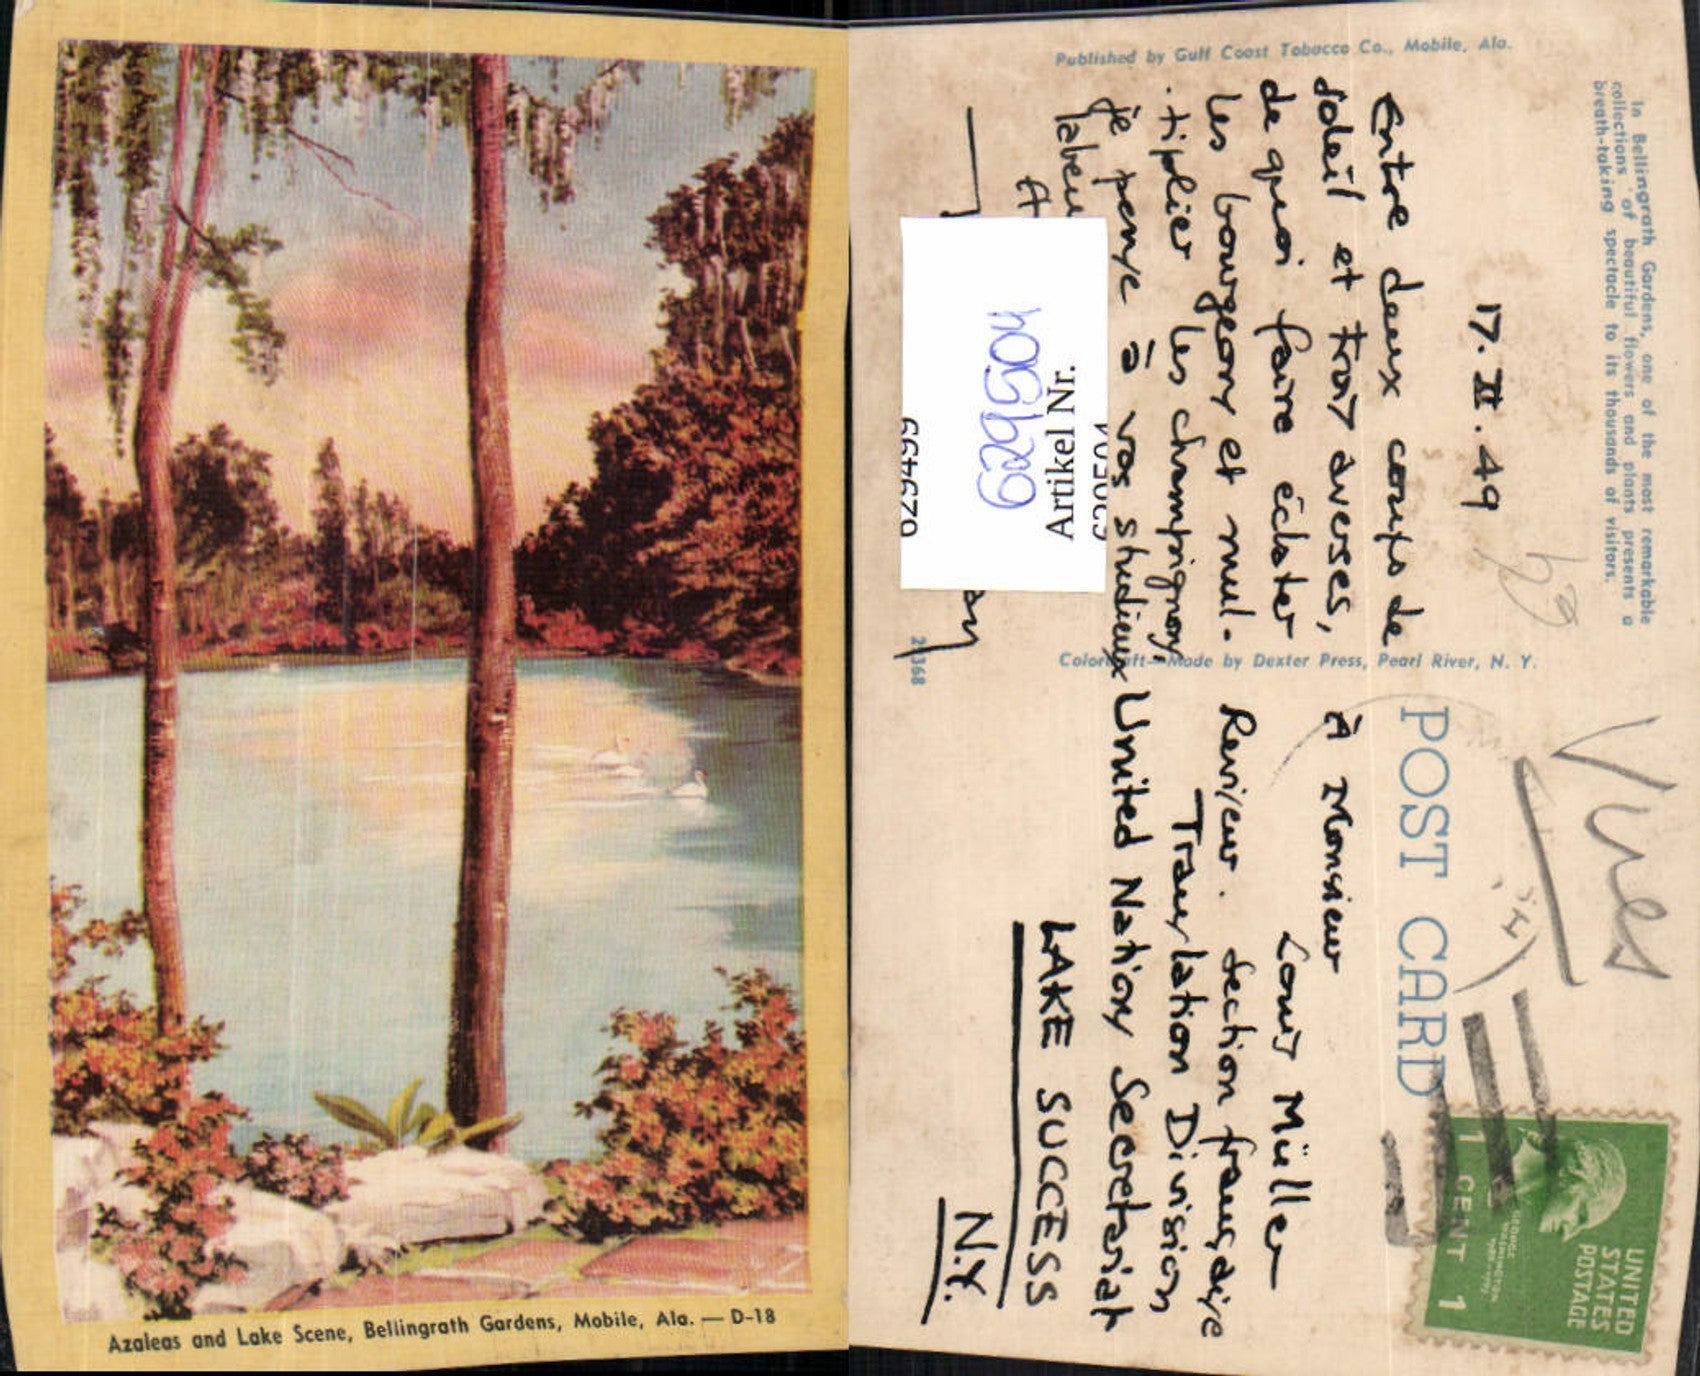 Azaleas and Lake Scene, Bellingrath Gardens, Mobile, Ala. — D-18
In Bellingrath Gardens, one of the most remarkable
collections of beautiful flowers and plants presents a
breath-taking spectacle to its thousands of visitors.
Published by Gulf Coast Tobacco Co., Mobile, Ala.
17. II. 49
Entre deux coups de
soleil et trois averses,
de quoi faire éclater
les bourgeons et mul-
tiplier les champignons,
je pense à vos studieux
labeu
et
Colorcraft—Made by Dexter Press, Pearl River, N. Y.
29368
629504
Artikel Nr.
629504
629499
Vues
POST CARD
UNITED
STATES
POSTAGE
GEORGE
WASHINGTON
1 CENT 1
À Monsieur
Louis Müller
Reviseur. Section française
Translation Division
United Nations Secretariat
LAKE SUCCESS
N.Y.